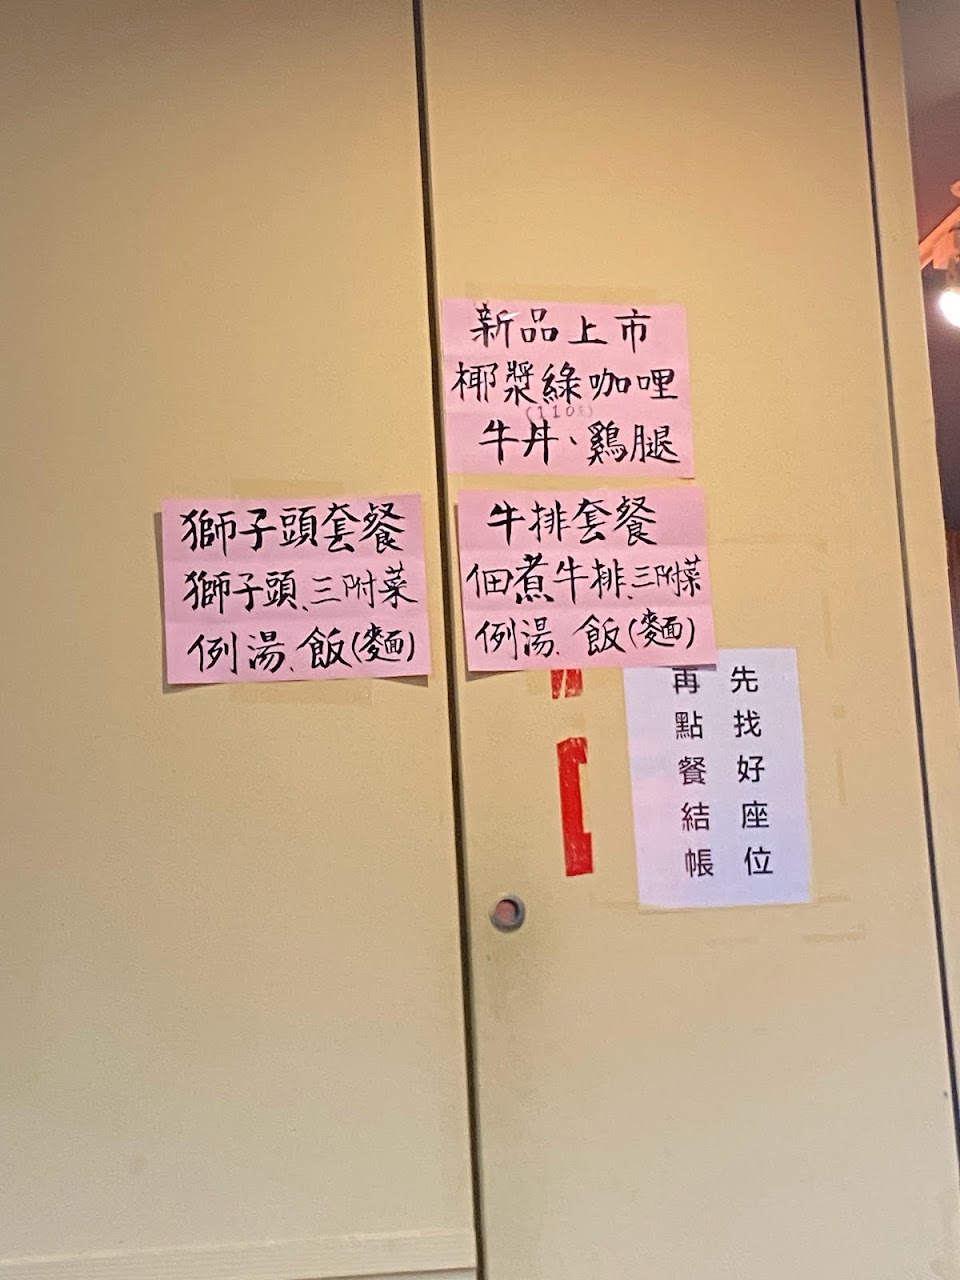 新品上市
椰漿綠咖哩
牛丼、鷄腿
獅子頭套餐
獅子頭、三附菜
例湯、飯(麵)
牛排套餐
佃煮牛排、三附菜
例湯、飯(麵)
先找好座位
再點餐結帳